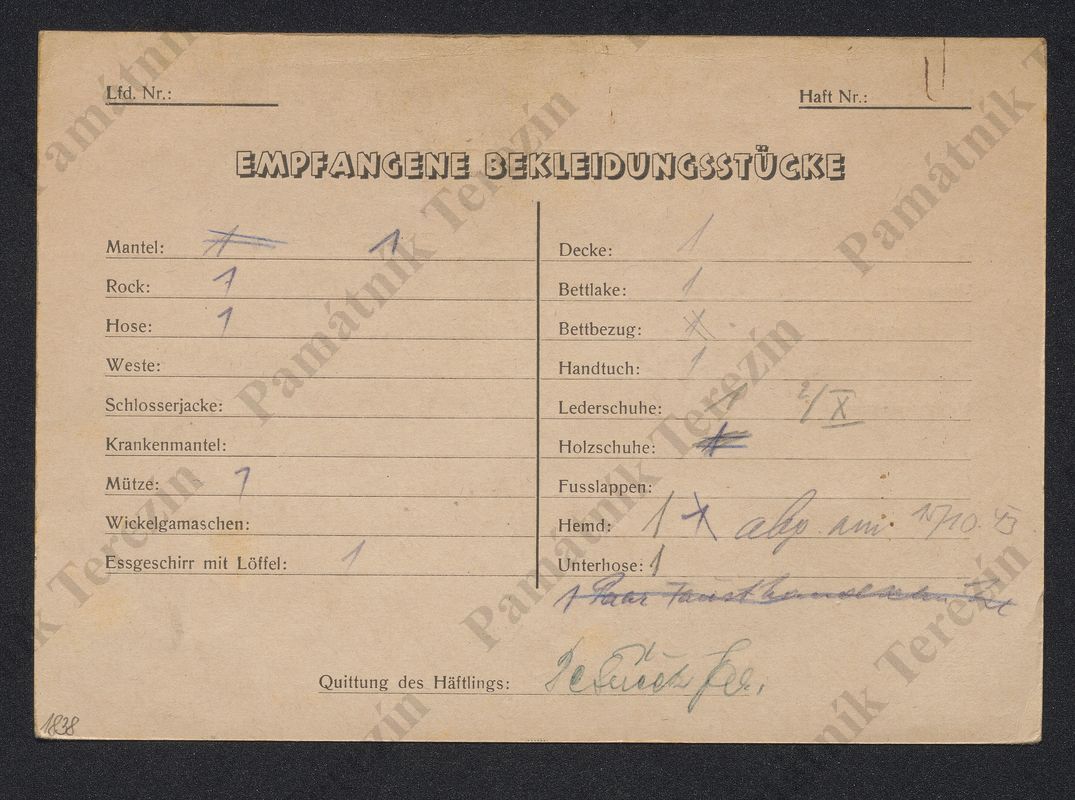 Lfd. Nr.:
Haft Nr.:
EMPFANGENE BEKLEIDUNGSSTÜCKE
Mantel: 1 1
Rock: 1
Hose: 1
Weste:
Schlosserjacke:
Krankenmantel:
Mütze: 1
Wickelgamaschen:
Essgeschirr mit Löffel: 1
Decke: 1
Bettlake: 1
Bettbezug: 1
Handtuch: 1
Lederschuhe: 1 2/X
Holzschuhe: 1
Fusslappen:
Hemd: 1 1 abg. am 15/10. 43
Unterhose: 1
1 Paar Fausthandschuhe
Quittung des Häftlings:
1838
Památník Terezín